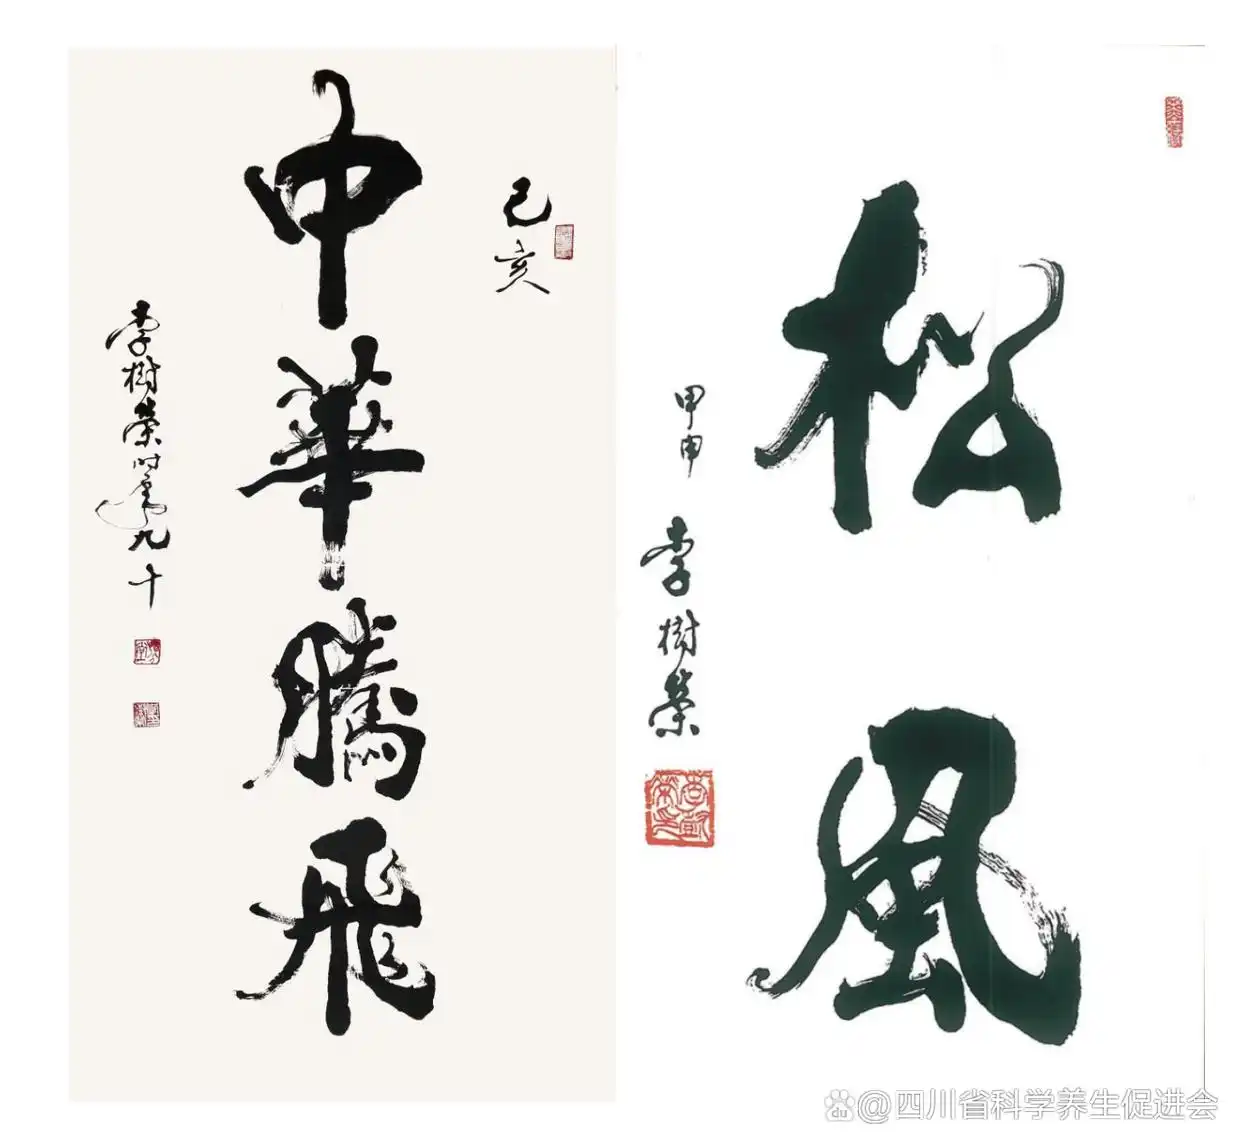 己亥
中華騰飛
李樹榮时年九十
松風
甲申
李樹榮
@四川省科学养生促进会